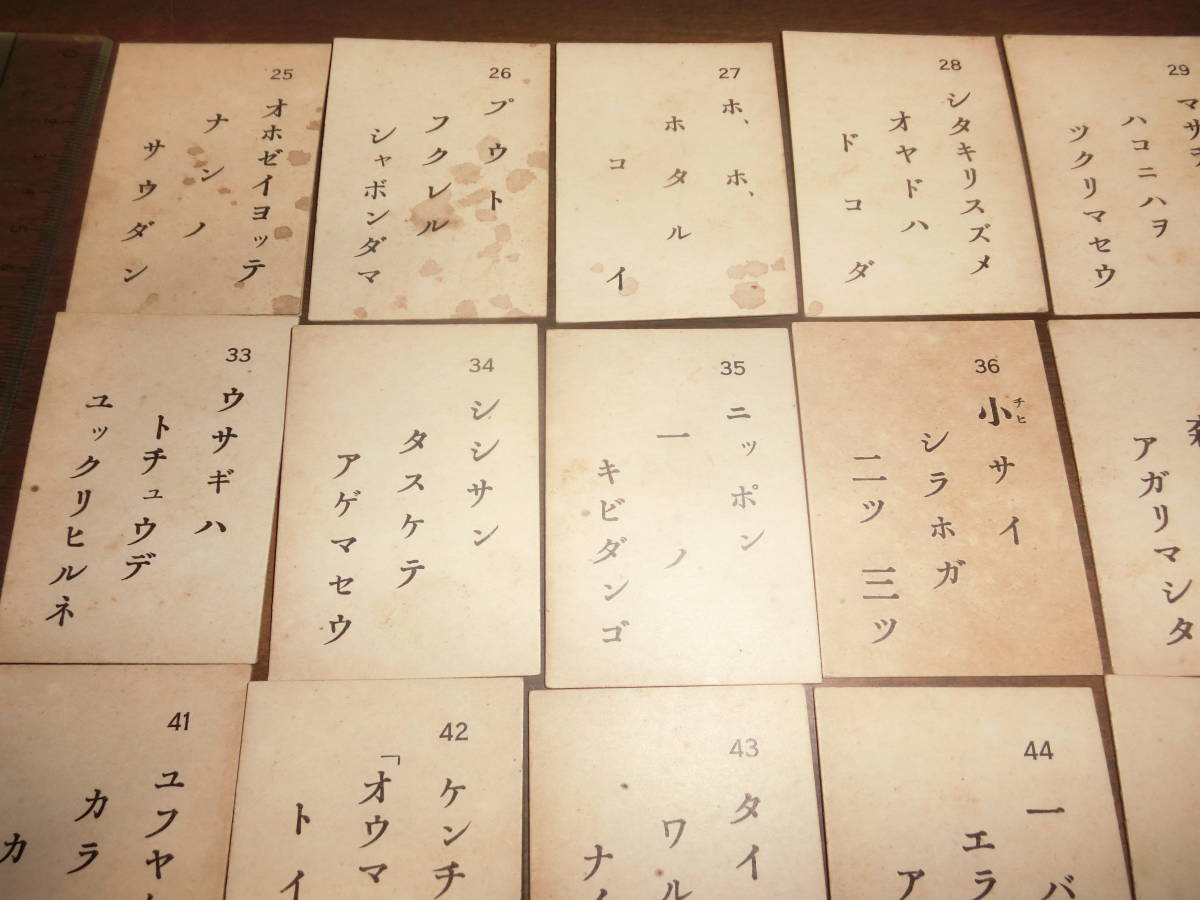 25
オホゼイヨッテ
ナンノ
サウダン
26
プウト
フクレル
シャボンダマ
27
ホ、ホ、
ホタル
コイ
28
シタキリスズメ
オヤドハ
ドコダ
29
マサヲ
ハコニハヲ
ツクリマセウ
33
ウサギハ
トチュウデ
ユックリヒルネ
34
シシサン
タスケテ
アゲマセウ
35
ニッポン
一ノ
キビダンゴ
36
小サイ
チヒ
シラホガ
二ツ 三ツ
アガリマシタ
41
ユフヤ
カラ
カ
42
ケンチ
「オウマ
トイ
43
タイ
ワル
ナ
44
一バ
エラ
ア